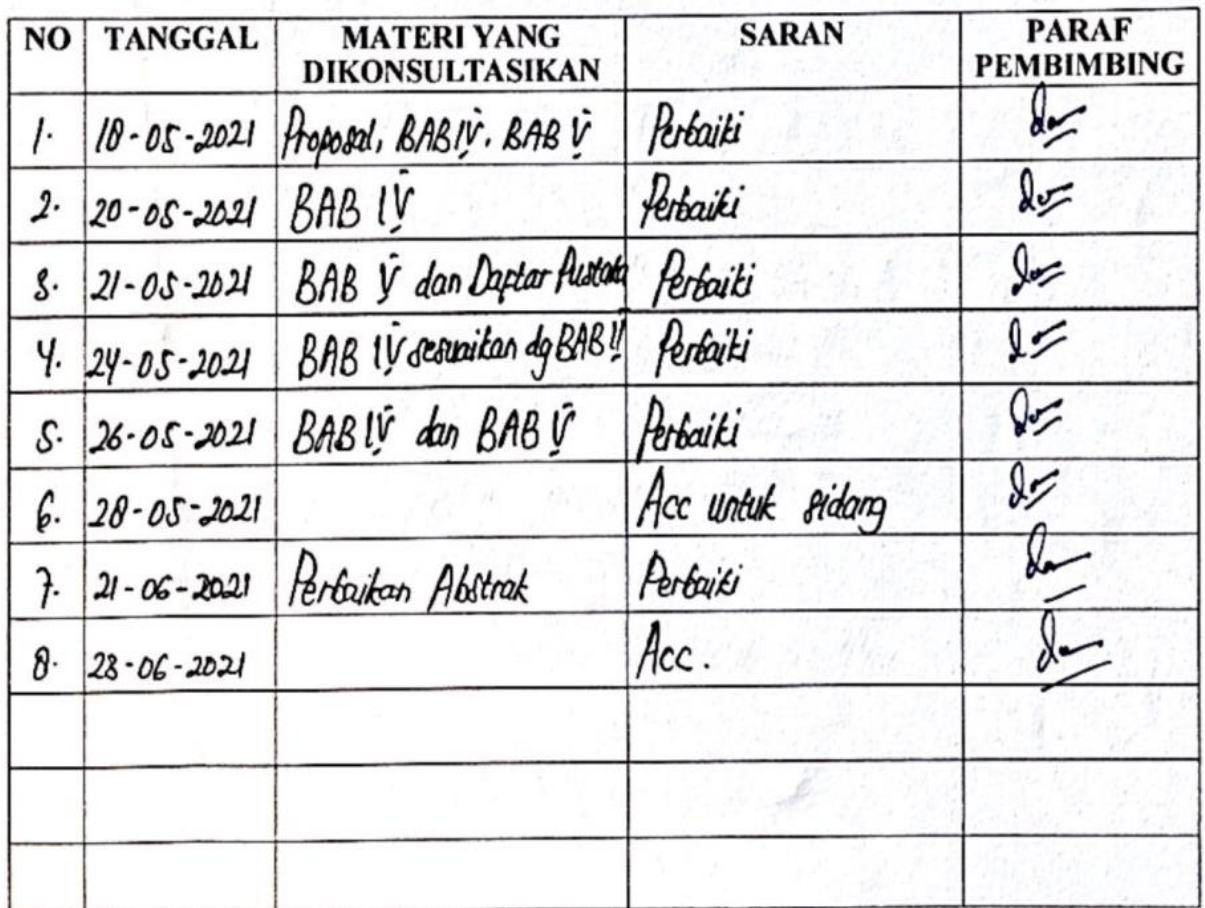 NO TANGGAL MATERI YANG DIKONSULTASIKAN SARAN PARAF PEMBIMBING
1. 18-05-2021 Proposal, BAB IV, BAB V Perbaiki
2. 20-05-2021 BAB IV Perbaiki
3. 21-05-2021 BAB V dan Daptar Pustaka Perbaiki
4. 24-05-2021 BAB IV sesuaikan dg BAB II Perbaiki
5. 26-05-2021 BAB IV dan BAB V Perbaiki
6. 28-05-2021 Acc untuk sidang
7. 21-06-2021 Perbaikan Abstrak Perbaiki
8. 23-06-2021 Acc.